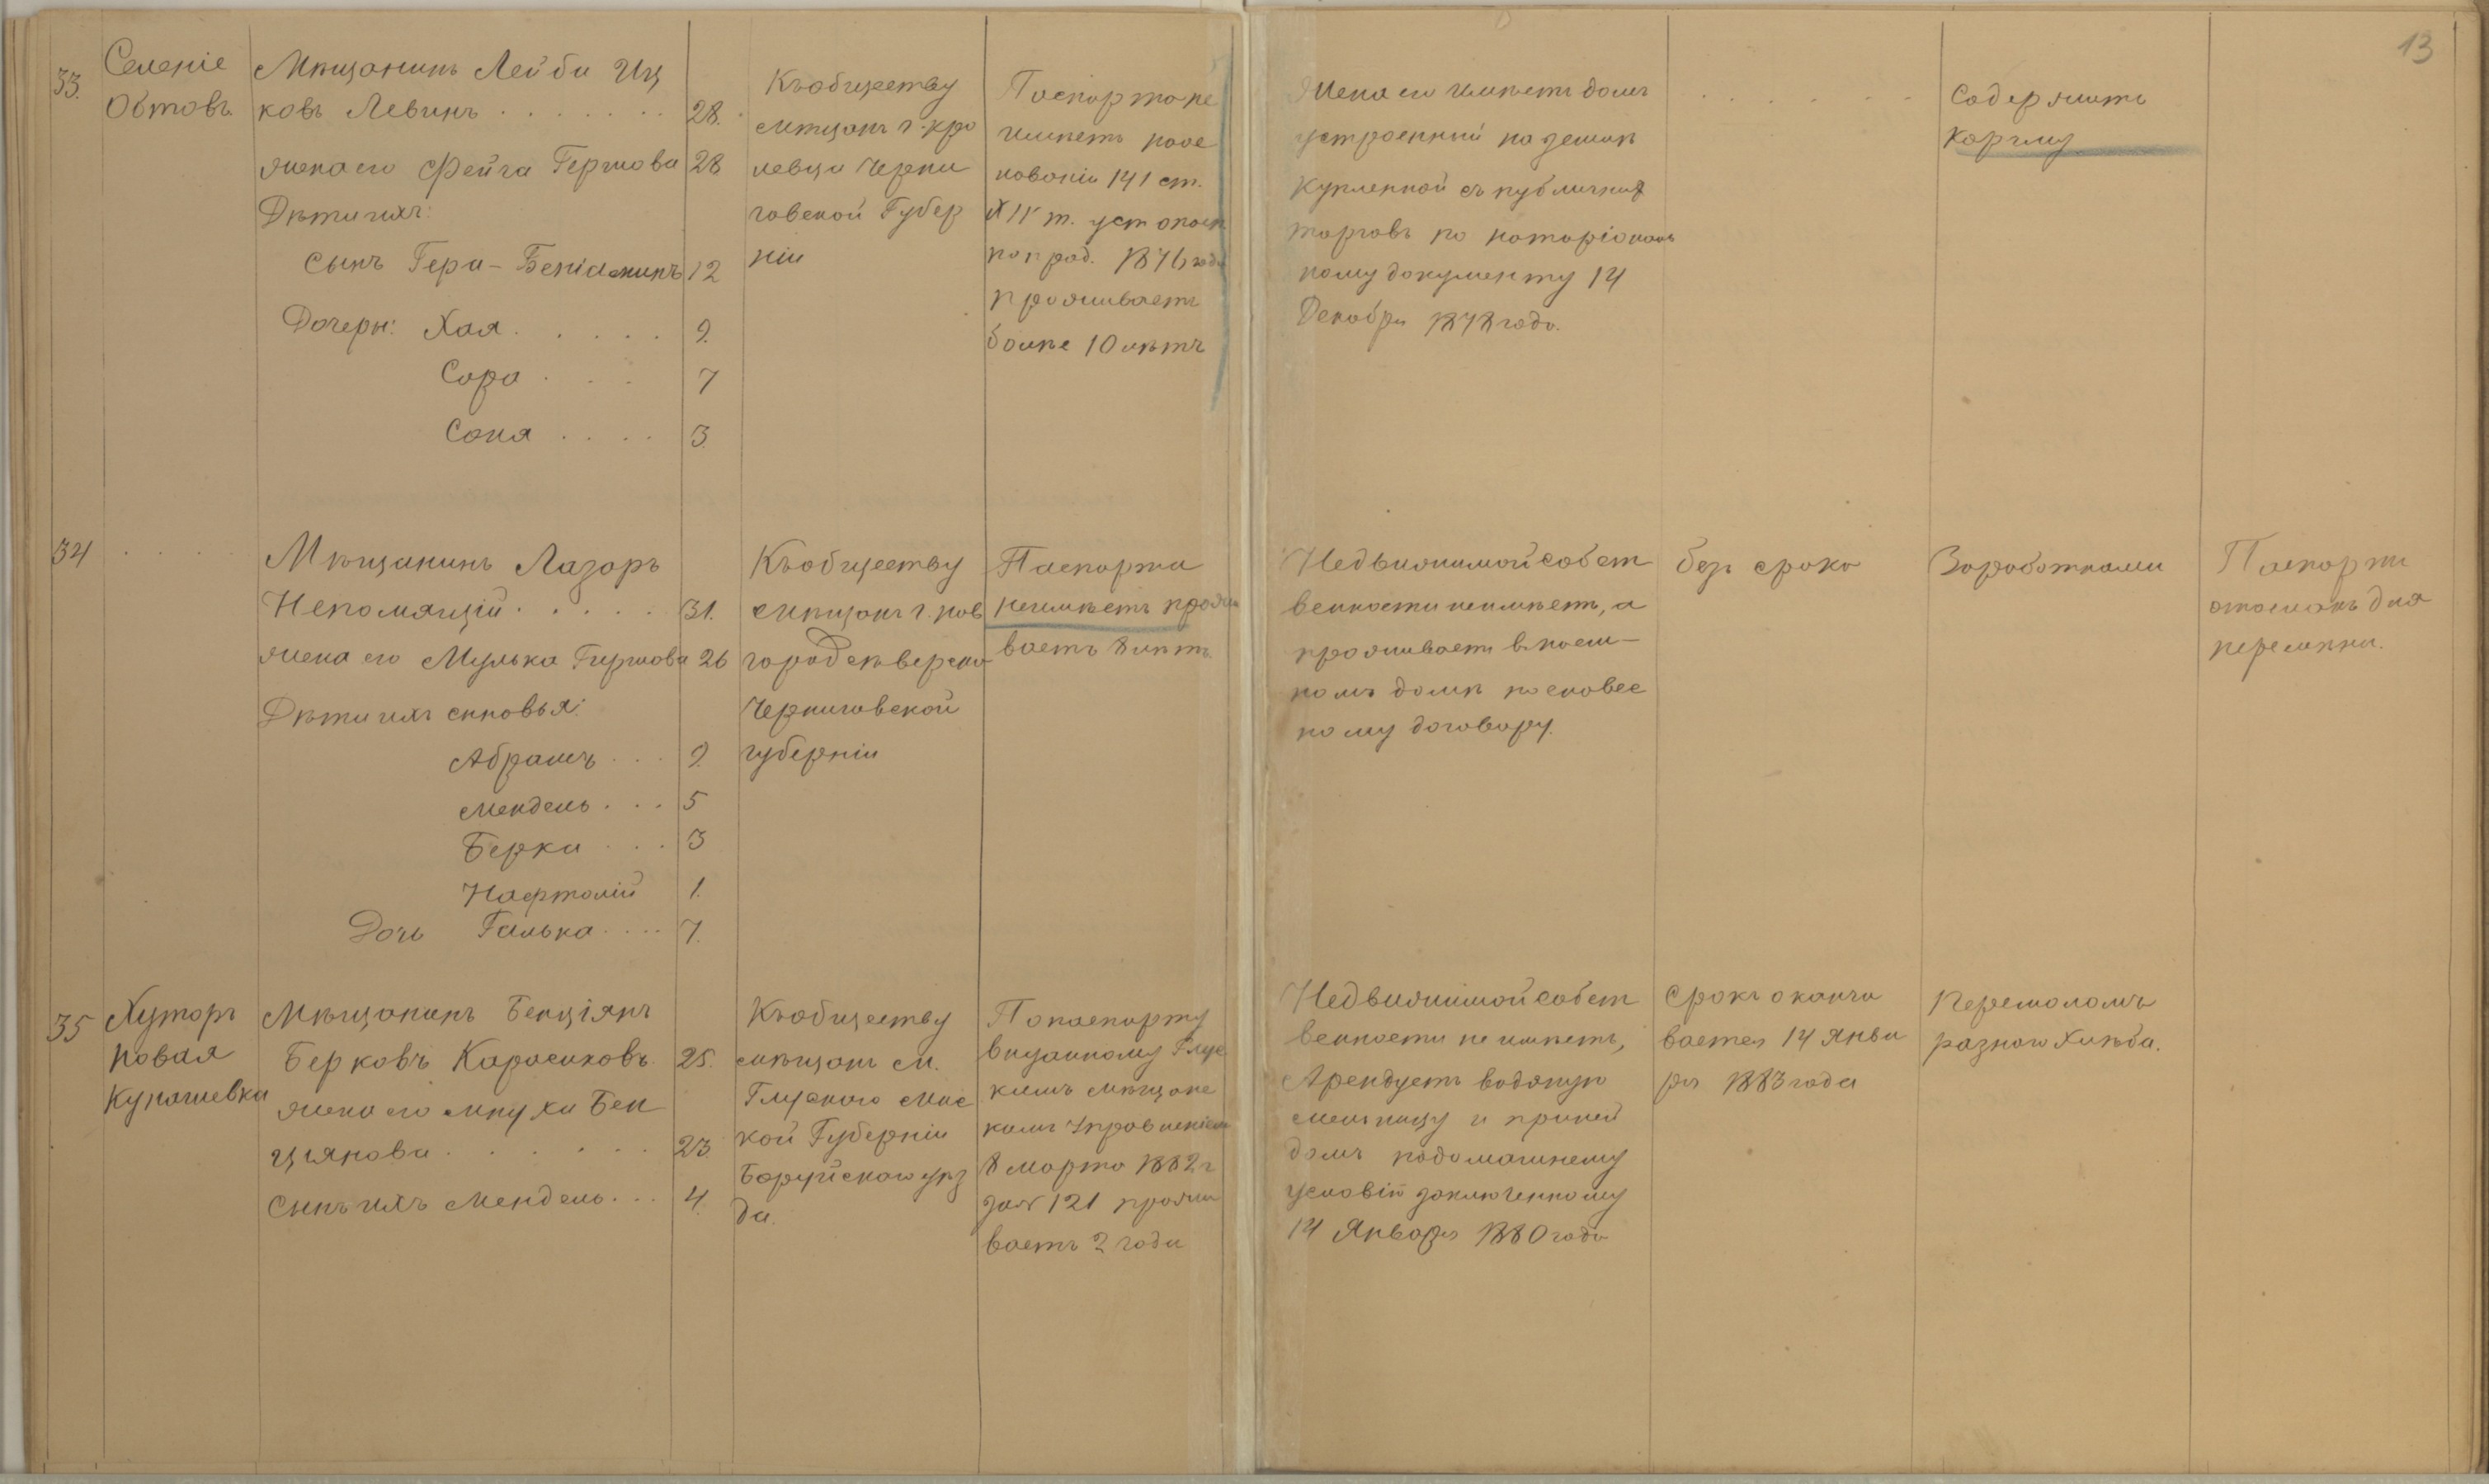 13
33.
Селеніе
Обтовъ.
Мѣщанинъ Лейба Иц
ковъ Левинъ . . . . . . . 28.
жена его Фейга Гершова 28
Дѣти ихъ:
сынъ Гера-Беніаминъ 12
Дочери: Хая . . . . . 9.
Сора . . . 7
Соня . . . . 3.
Къ обществу
мѣщанъ г. Кро
левца Черни
говской Губер
ніи
Паспорта не
имѣетъ на ос
нованіи 141 ст.
XIV т. уст о пасп.
по прод. 1876 года
проживаетъ
болѣе 10 лѣтъ
Жена его имѣетъ домъ
устроенный на землѣ
купленной съ публичныхъ
торговъ по нотаріаль
ному документу 14
Декабря 1878 года.
. . . . . . .
Содержитъ
корчму
34 . . . .
Мѣщанинъ Лазоръ
Непомящій . . . . . 31.
жена его Мулька Гиршова 26
Дѣти ихъ сыновья:
Абрамъ . . . 9.
Мендель . . . 5
Берка . . . 3
Нафтолій 1.
Дочь Галька . . . . 7.
Къ обществу
мѣщанъ г. Нов
городсѣверска
Черниговской
губерніи
Паспорта
не имѣетъ прожи
ваетъ 8 лѣтъ.
Недвижимой собст
венности не имѣетъ, а
проживаетъ в наем-
номъ домѣ по словес
ному договору.
безъ срока
Заработками
Паспортъ
отосланъ для
перемѣны.
35
Хуторъ
Новая
Кунашевка
Мѣщанинъ Бенціянъ
Берковъ Карасиковъ 25.
жена его Мнуха Бен
ціянова . . . . . . 23.
Сынъ ихъ Мендель . . . 4.
Къ обществу
мѣщанъ м.
Глускаго Минс
кой Губерніи
Боруйскаго уѣз
да.
По паспорту
выданному Глус
кимъ мѣщанс
кимъ Управленіемъ
8 Марта 1882 г
за № 121 прожи
ваетъ 2 года
Недвижимой собст
венности не имѣетъ,
Арендуетъ водяную
мельницу и при ней
домъ по домашнему
условію заключенному
14 Января 1880 года
Срокъ оканчи
вается 14 Янва
ря 1883 года
Перемоломъ
разнаго хлѣба.